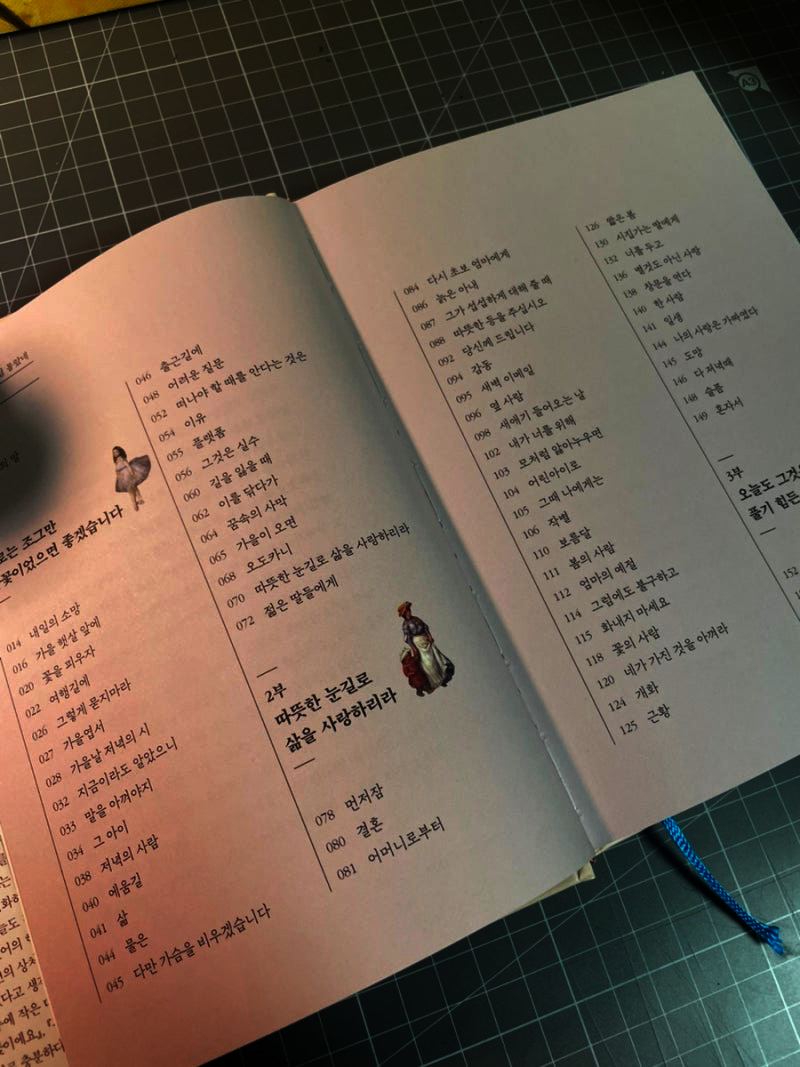 봄맞네
로는 조그만
꽃이었으면 좋겠습니다
014 내일의 소망
016 가을 햇살 앞에
020 꽃을 피우자
022 여행길에
026 그렇게 묻지마라
027 가을엽서
028 가을날 저녁의 시
032 지금이라도 알았으니
033 말을 아껴야지
034 그 아이
038 저녁의 사람
040 에움길
041 삶
044 물은
045 다만 가슴을 비우겠습니다
046 출근길에
048 어려운 질문
052 떠나야 할 때를 안다는 것은
054 이유
055 플랫폼
056 그것은 실수
060 길을 잃을 때
062 이를 닦다가
064 꿈속의 사막
065 가을이 오면
068 오도카니
070 따뜻한 눈길로 삶을 사랑하리라
072 젊은 딸들에게
2부
따뜻한 눈길로
삶을 사랑하리라
078 먼저잠
080 결혼
081 어머니로부터
084 다시 초보 엄마에게
086 늙은 아내
087 그가 섭섭하게 대해 줄 때
088 따뜻한 등을 주십시오
092 당신께 드립니다
094 감동
095 새벽 이메일
096 옆 사람
098 새애기 들어오는 날
102 내가 너를 위해
103 모처럼 앓아누우면
104 어린아이로
105 그때 나에게는
106 작별
110 보름달
111 봄의 사람
112 엄마의 예절
114 그럼에도 불구하고
115 화내지 마세요
118 꽃의 사람
120 네가 가진 것을 아껴라
124 개화
125 근황
126 짧은 봄
130 시집가는 딸에게
132 너를 두고
136 별것도 아닌 사랑
138 창문을 연다
140 한 사람
141 일생
144 나의 사랑은 가짜였다
145 도망
146 다 저녁때
148 슬픔
149 혼자서
3부
오늘도 그것은
풀기 힘든
152
A3